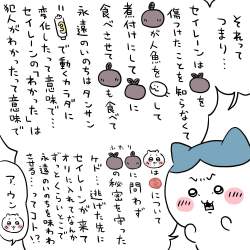 それって
つまり…
セイレーンはを
傷つけたことを知らなくて
が人魚をして
煮付けにしてに
食べさせても食べて
永遠のいのちはタンサン
で動くカラダに
変化したって意味で…
セイレーンの「わかった」は
犯人がわかったって意味で
はについて
ふたり
に問わず
の秘密を守った
ケド…逃げた先に
セイレーンが来て
オリに入れて
ずっとくらいとこで
永遠のいのちを味わわ
せる…ってコト!?
アウン